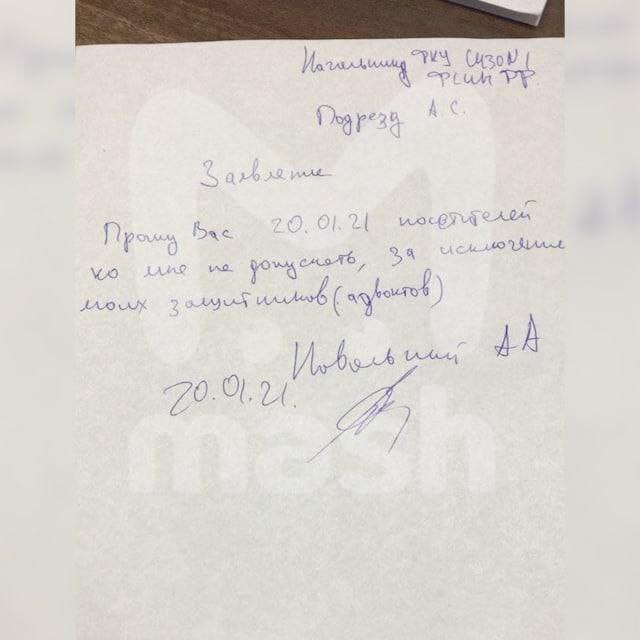 Начальнику ФКУ СИЗО N1
ФСИН РФ.
Подрезу А С.
Заявление
Прошу Вас 20.01.21 посетителей
ко мне не допускать, за исключение
моих защитников (адвоктов)
Навальний А А
20.01.21.
mash